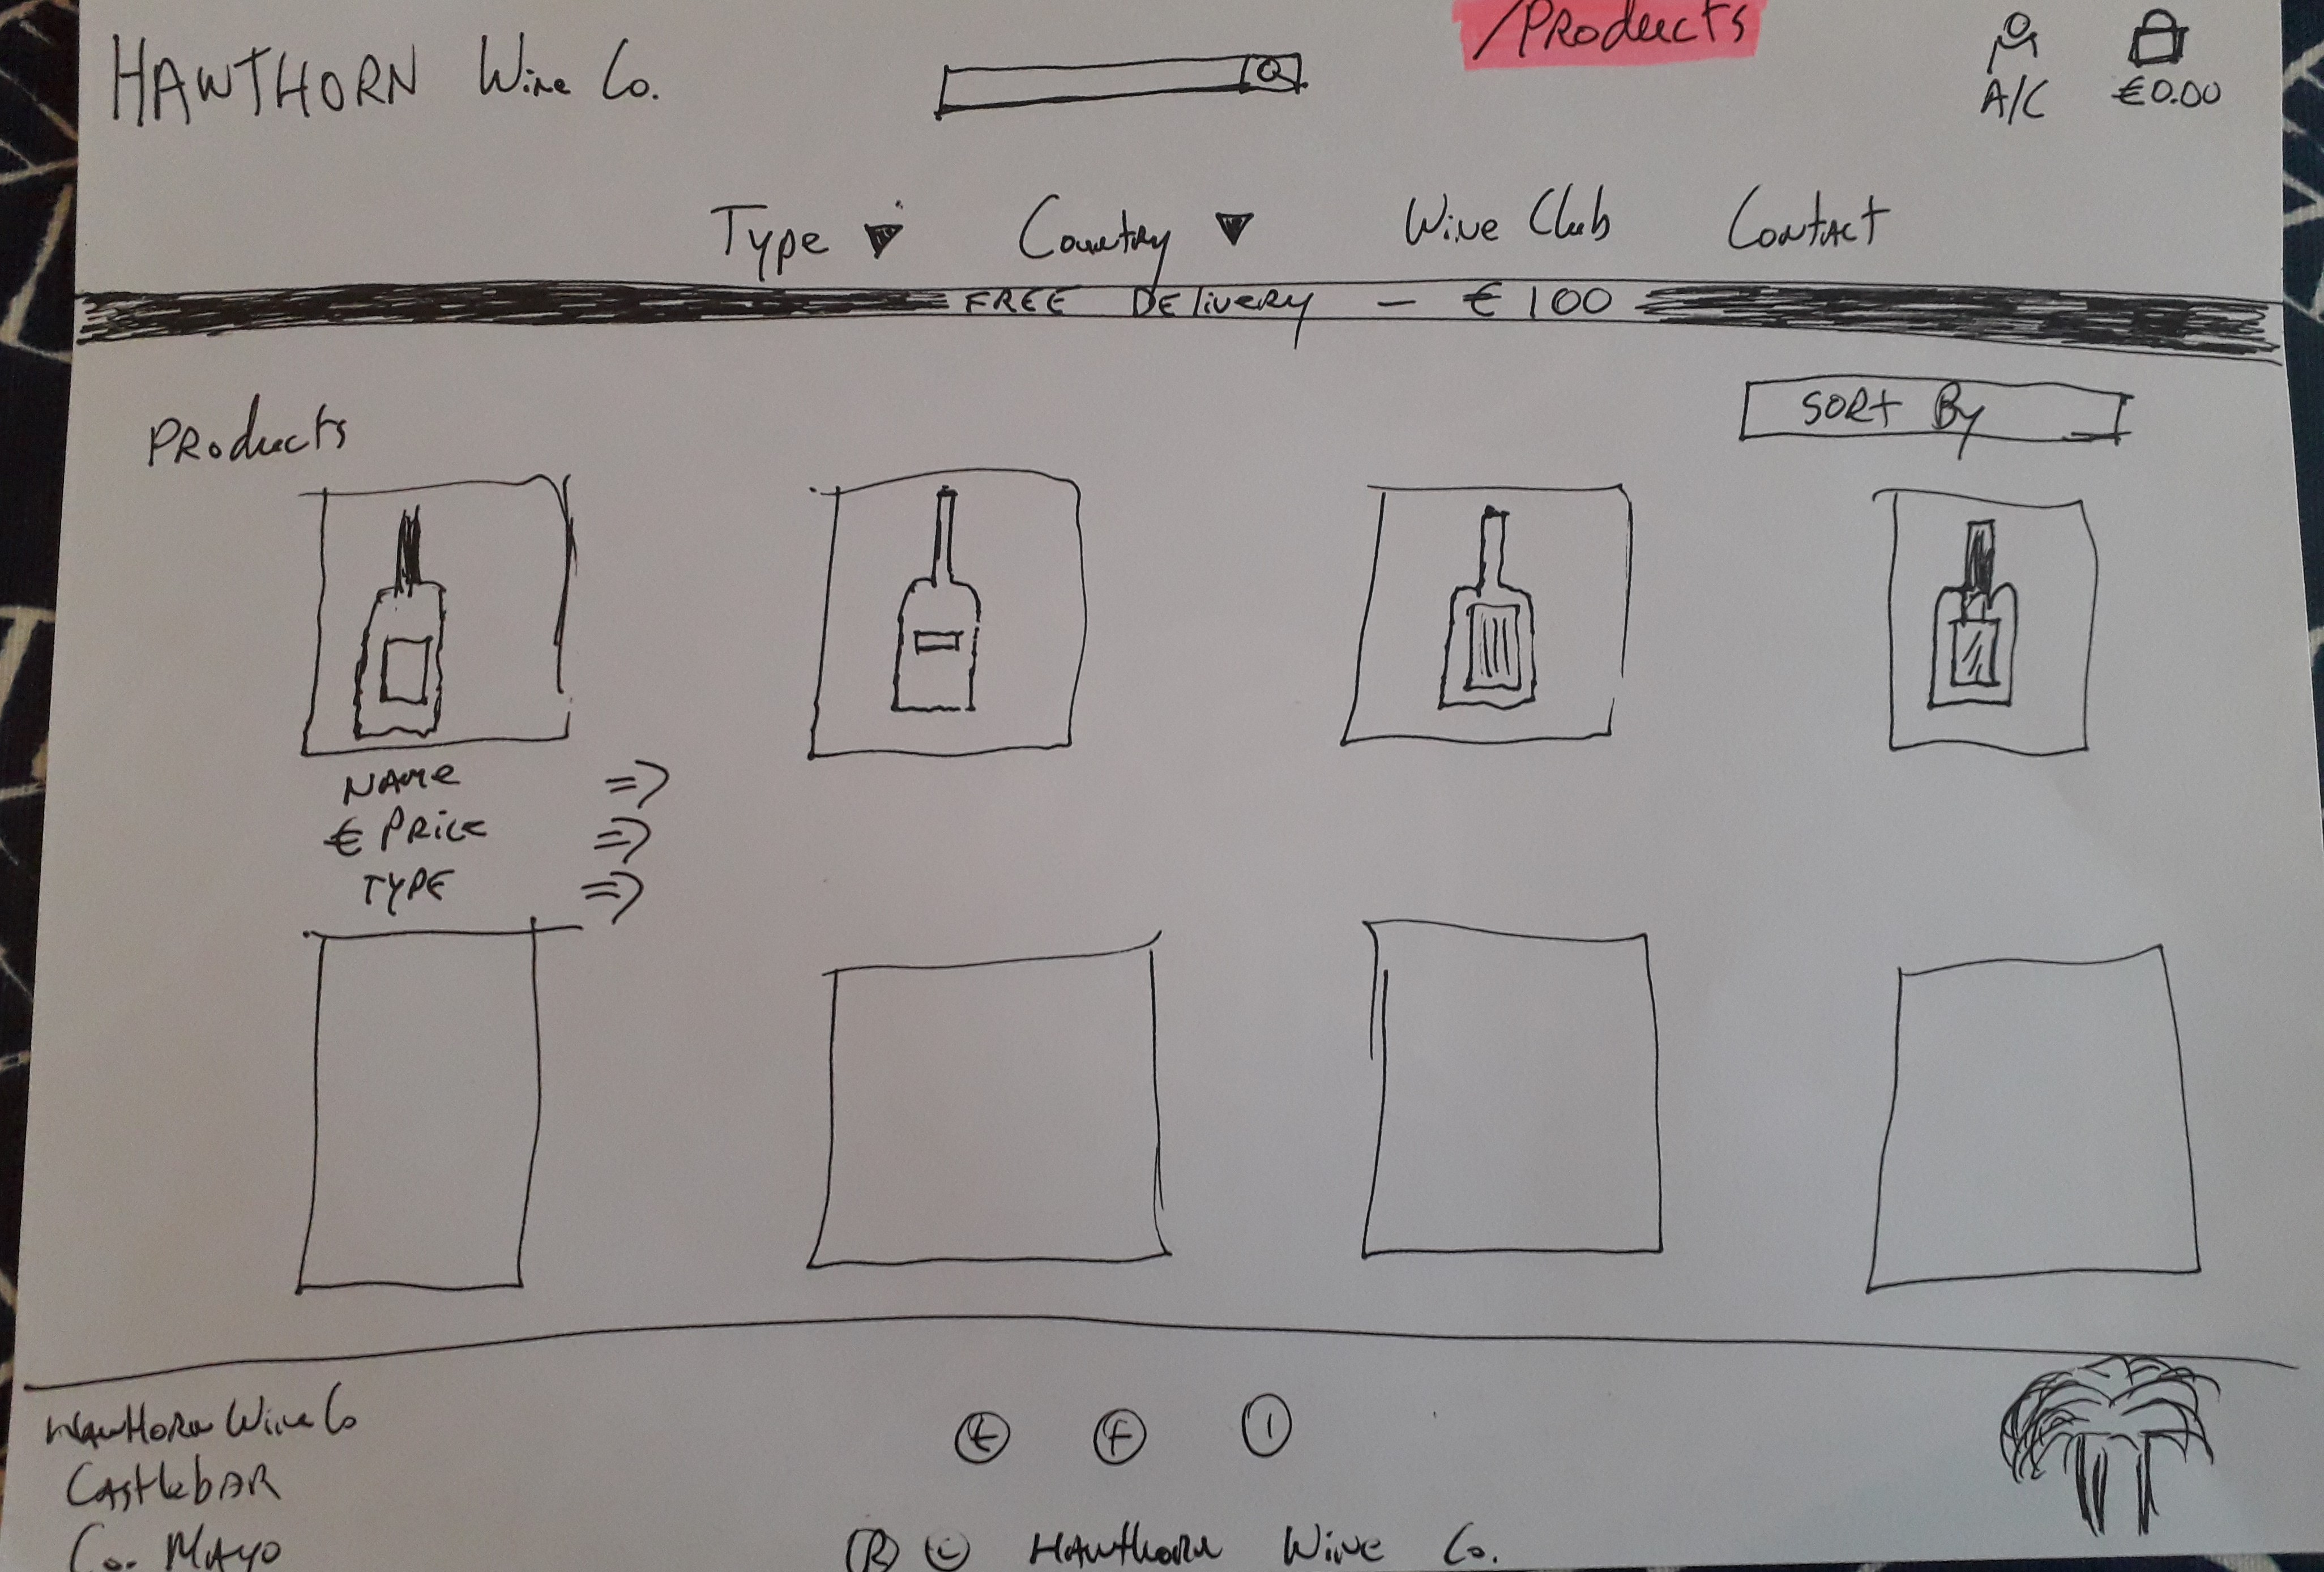 /Products
HAWTHORN Wine Co.
A/C
€0.00
Type ▼ Country ▼ Wine Club Contact
FREE Delivery — €100
Products
SORT By
NAME =>
€ PRICE =>
TYPE =>
Hawthorn Wine Co
Castlebar
Co. Mayo
t f I
® © Hawthorn Wine Co.